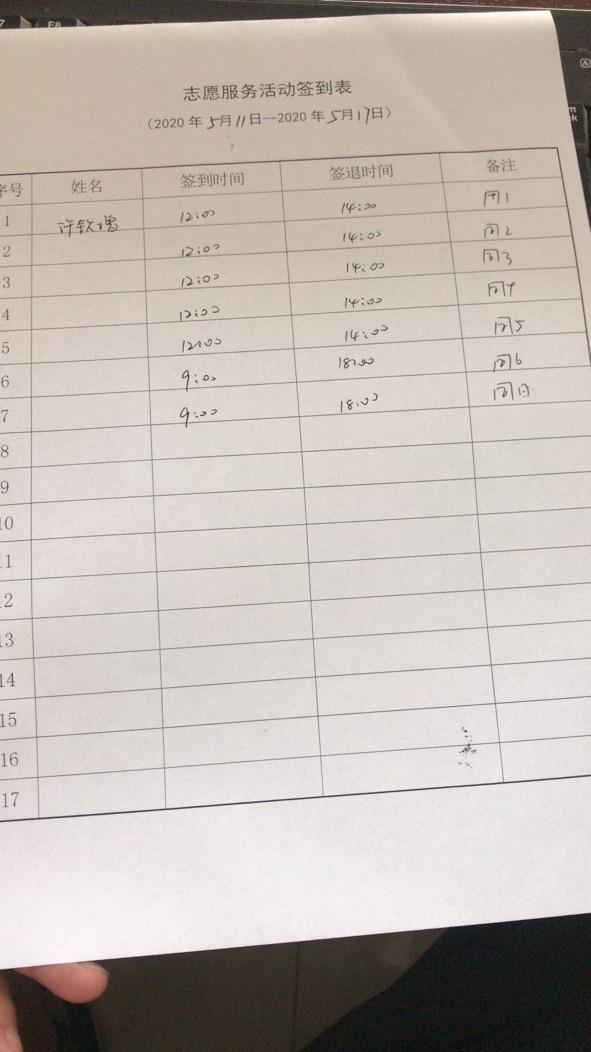 志愿服务活动签到表
(2020 年 5月 11日--2020 年 5月 17日)
序号 姓名 签到时间 签退时间 备注
1 许钦 12:00 14:00 周1
2 12:00 14:00 周2
3 12:00 14:00 周3
4 12:00 14:00 周4
5 12:00 14:00 周5
6 9:00 18:00 周6
7 9:00 18:00 周日
8
9
10
11
12
13
14
15
16
17